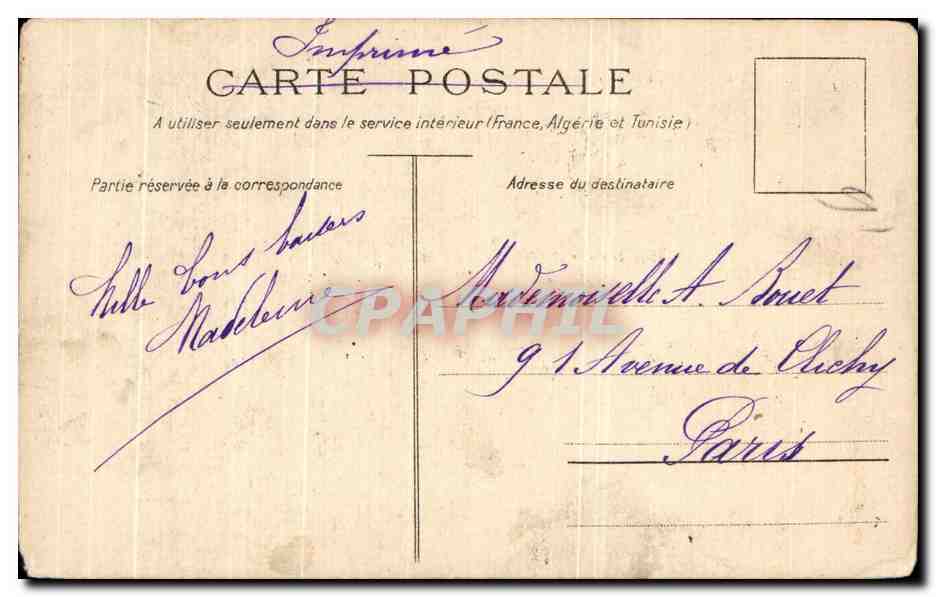 Imprimé
CARTE POSTALE
A utiliser seulement dans le service intérieur (France, Algérie et Tunisie)
Partie réservée à la correspondance
Mille bons baisers
Madeleine
Adresse du destinataire
Mademoiselle A. Bouet
91 Avenue de Clichy
Paris
CPAPHIL